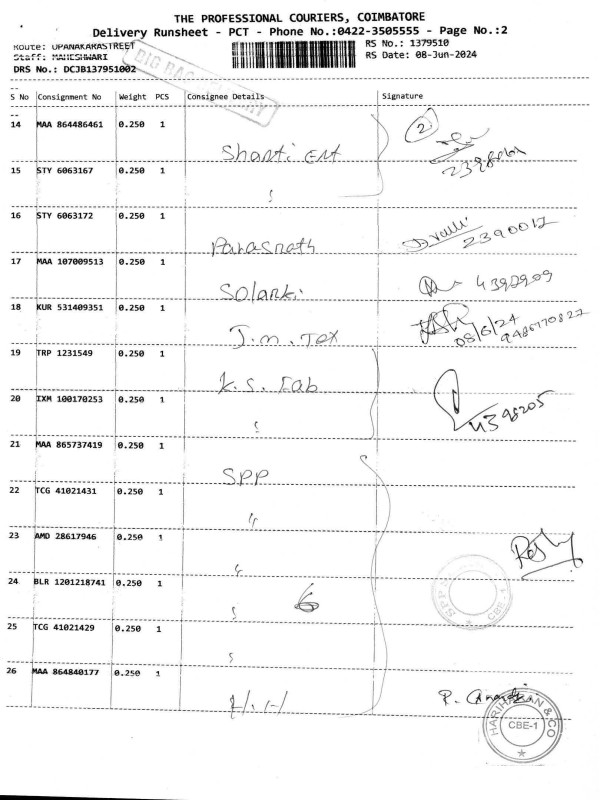 THE PROFESSIONAL COURIERS, COIMBATORE
Delivery Runsheet - PCT - Phone No.:0422-3505555 - Page No.:2
Route: UPANAKARASTREET
RS No.: 1379510
Staff: MAHESHWARI
RS Date: 08-Jun-2024
DRS No.: DCJB137951002
BIG BAG
--
S No Consignment No Weight PCS Consignee Details Signature
--
14 MAA 864486461 0.250 1 Shanti Ent
2
15 STY 6063167 0.250 1
16 STY 6063172 0.250 1 Parasnath
2390012
17 MAA 107009513 0.250 1 Solanki
4392909
18 KUR 531409351 0.250 1 J.m. Tex
08/6/24
19 TRP 1231549 0.250 1 K.S. Fab
20 IXM 100170253 0.250 1
4398205
21 MAA 865737419 0.250 1 SPP
22 TCG 41021431 0.250 1
23 AMD 28617946 0.250 1
24 BLR 1201218741 0.250 1
6
CBE-1
25 TCG 41021429 0.250 1
26 MAA 864840177 0.250 1
HARIHARAN & CO
CBE-1